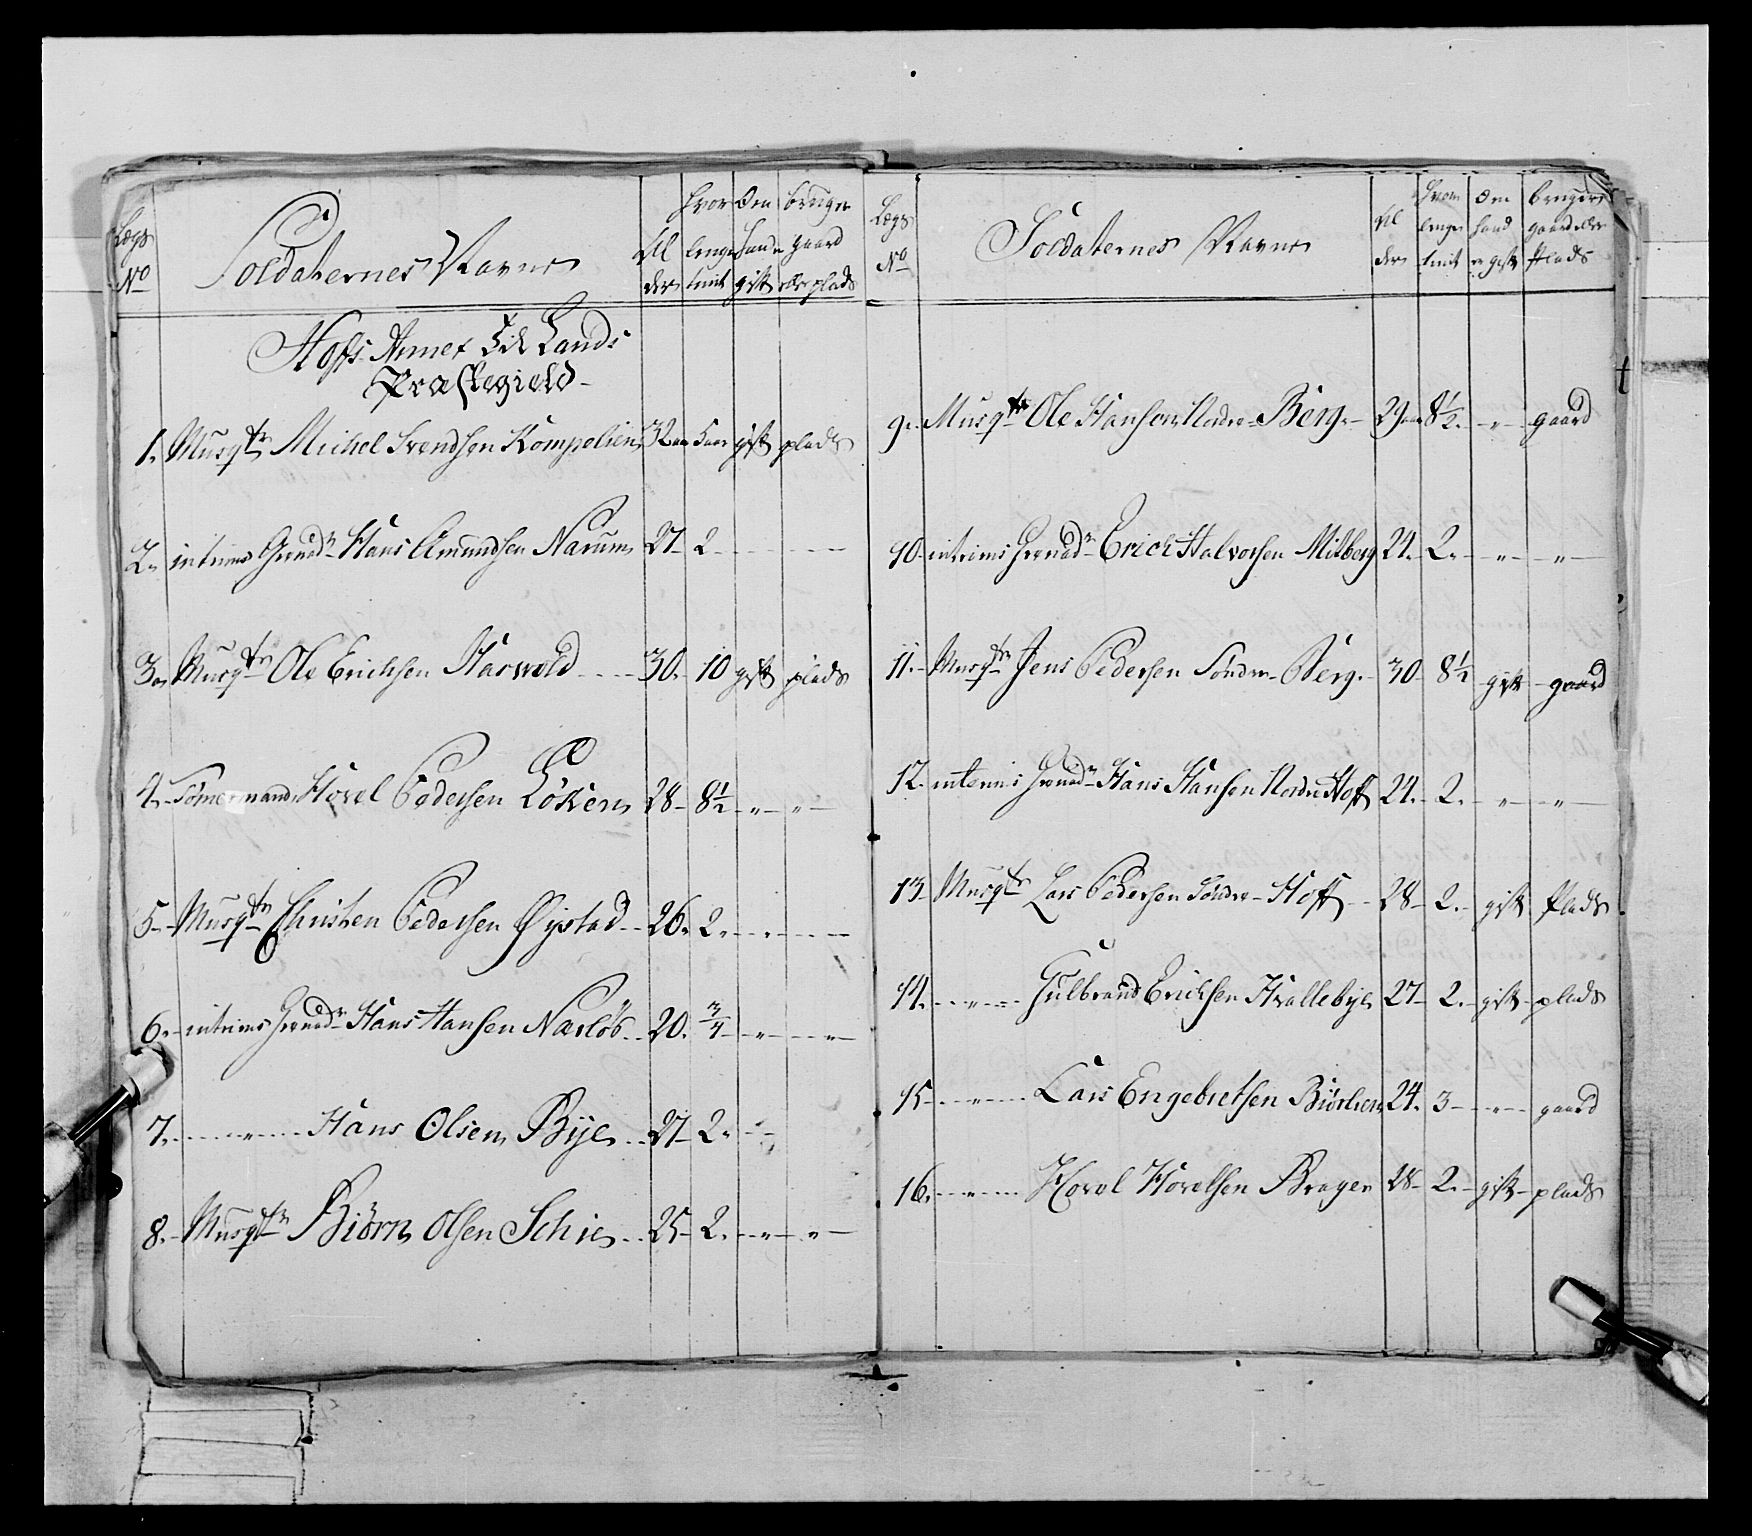 Lægs No
Soldaternes Navne
Al der
hvor lenge tient
Om hand gift
bruger gaard eller plads
Hofs Annex til Lands
Præstegield
1. Musqtr Michel Svendsen Kompelien 32 aar 5 aar gift plads
2. intrims Grenadr Hans Amundsen Narum 27 2
3. Musqtr Ole Erichsen Haswold 30. 10 gift plads
4. Tömermand Hovel Pedersen Löken 28 8½ " "
5 Musqtr Christen Pedersen Øystad 26. 2.
6. intrims Grenadr Hans Hansen Narlöb 20. ¾ " "
7. " Hans Olsen Bye 27 2.
8. Musqtr Biörn Olsen Schie 25 2. " "
Lægs No
Soldaternes Navne
Al der
hvor lenge tient
Om hand er gift
bruger gaard eller Plads
9. Musqtr Ole Hansen Nordre Berg 29 aar 8½. " gaard
10 intrims Grenadr Erich Halvorsen Milberg 24. 2. " "
11. Musqtr Jens Pedersen Söndre Berg. 30 8½ gift gaard
12. interims Grenadr Hans Hansen Nordre Hoff 24. 2. " "
13 Musqtr Lars Pedersen Söndre Hoff 28 2. gift Plads
14. " Gulbrand Erichsen Hvallebye 27 2. gift plads
15 " Lars Engebretsen Biörlien 24. 3 " gaard
16. " Hovel Hovelsen Brager 28 2. gift plads